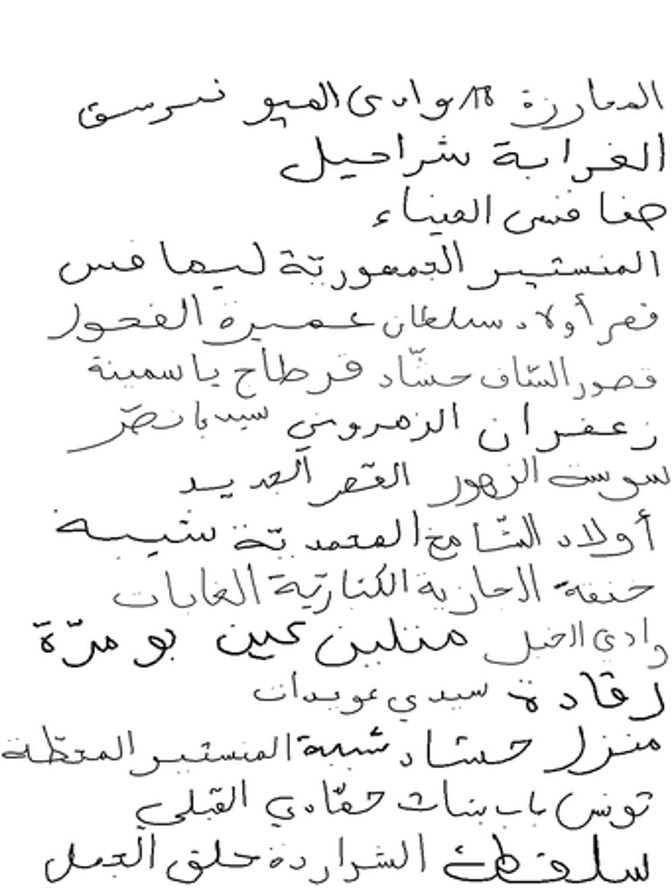 المعارزة 18 وادي الميو نبرسق
الغرابة شراحيل
صفاقس الميناء
المنستير الجمهورية ليمافس
قصر أولاد سلطان عميرة الفحول
قصور الساف حشّاد قرطاج ياسمينة
زعفران الزهروني سيدي بانصر
سوسة الزهور القصر الجديد
أولاد الشّامخ المعتمدية شبيبة
خنقة الجازية الكنائريّة الغابات
وادي الخيل منلين عين بو مرّة
رقادة سيدي عويدات
منزل حشاد شيبة المنستير المحطّة
تونس باب بنات حفّادي القبلي
سلقطة الشراردة حلق الجمل